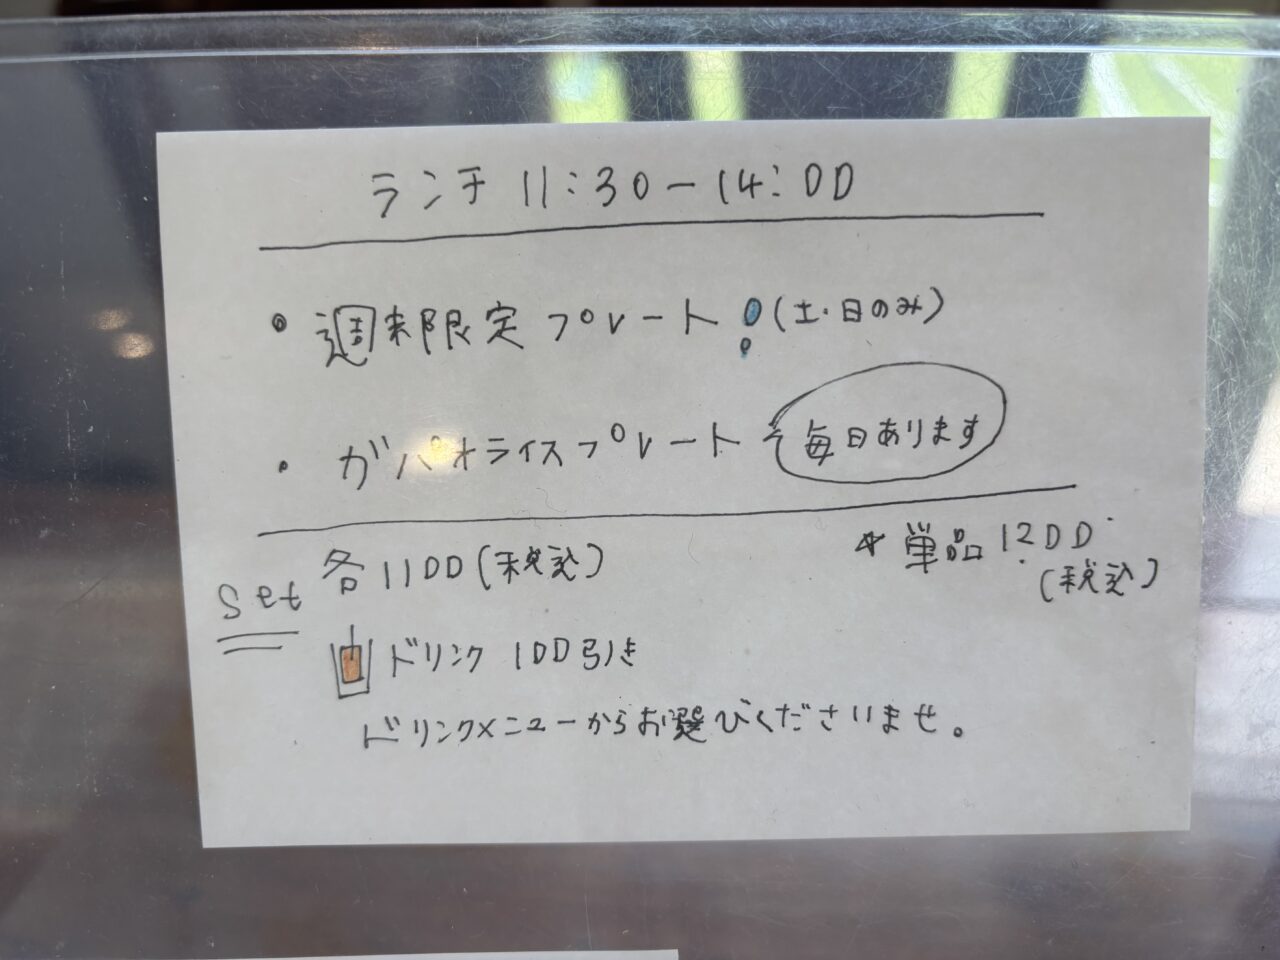 ランチ 11:30-14:00
• 週末限定プレート!(土・日のみ)
• ガパオライスプレート 毎日あります
Set 各1100(税込)
☆単品1200(税込)
ドリンク100引き
ドリンクメニューからお選びくださいませ。